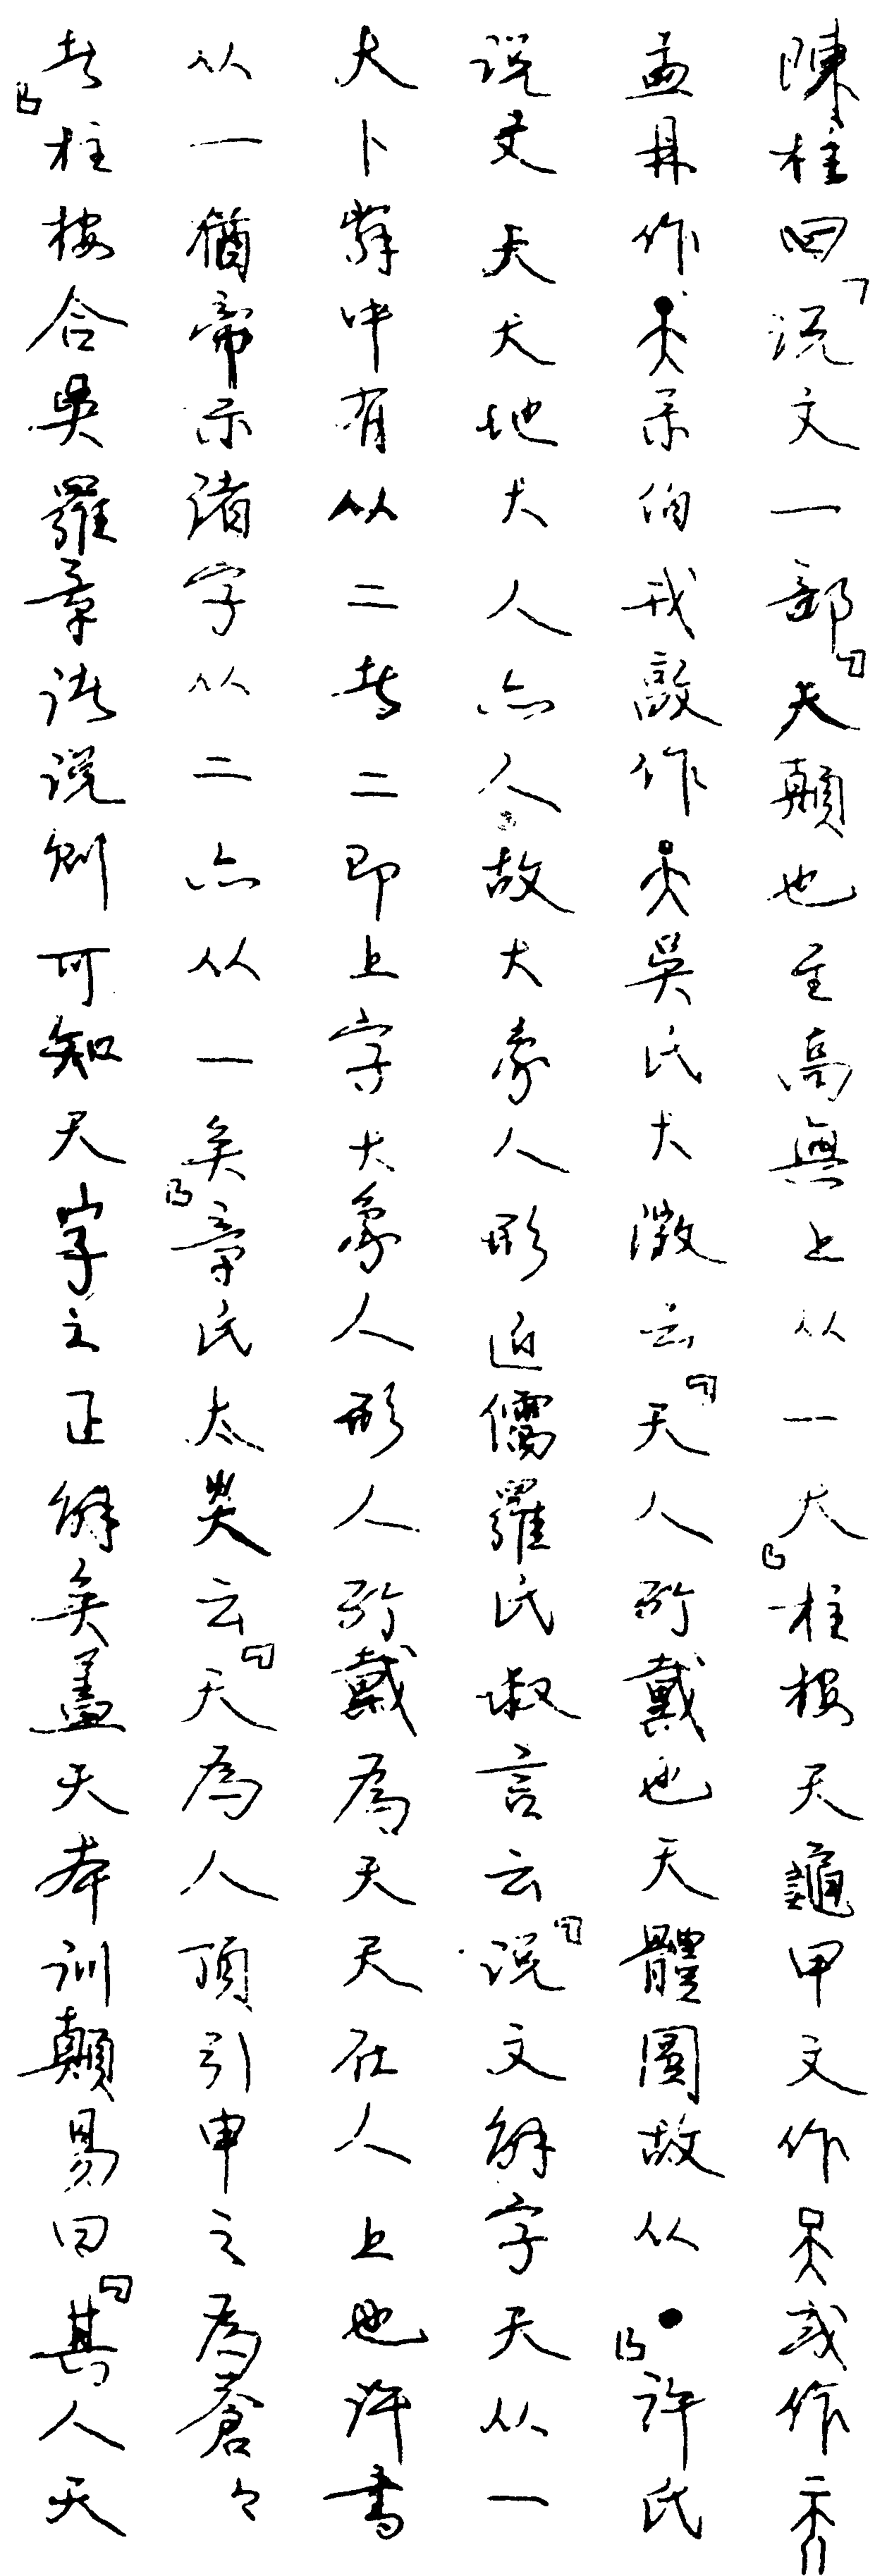 陳柱曰「説文一部『天顛也至高無上从一大』柱桉天龜甲文作或作
盂鼎作录伯戎敦作吳氏大澂云『天人所戴也天體圜故从●』許氏
説文天大地大人亦人故大象人形近儒羅氏叔言云『説文解字天从一
大卜辭中有从二者二即上字大象人形人所戴為天天在人上也許書
从一猶帝示諸字从二亦从一矣』章氏太炎云『天為人頂引申之為蒼々
者』柱桉合吳羅章諸説則可知天字之正解矣蓋天本訓顛易曰『其人天